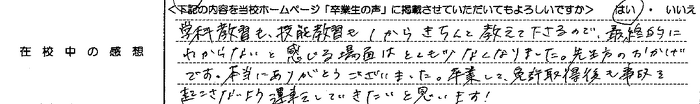 <下記の内容を当校ホームページ「卒業生の声」に掲載させていただいてもよろしいですか> はい ・ いいえ
在校中の感想
学科教習も、技能教習も1からきちんと教えて下さるので、最終的に
わからないと感じる場面はとても少なくなりました。先生方のおかげ
です。本当にありがとうございました。卒業して、免許取得後も事故を
起こさないよう運転をしていきたいと思います!